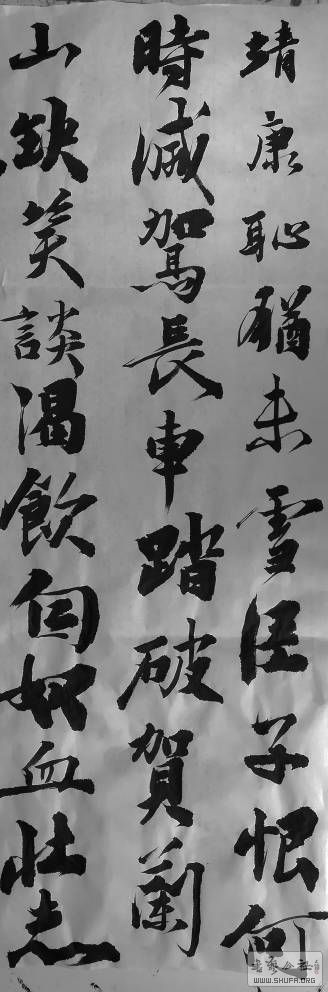 靖康恥猶未雪臣子恨何
時滅駕長車踏破賀蘭
山缺笑談渴飲匈奴血壯志
书艺公社
WWW.SHUFA.ORG